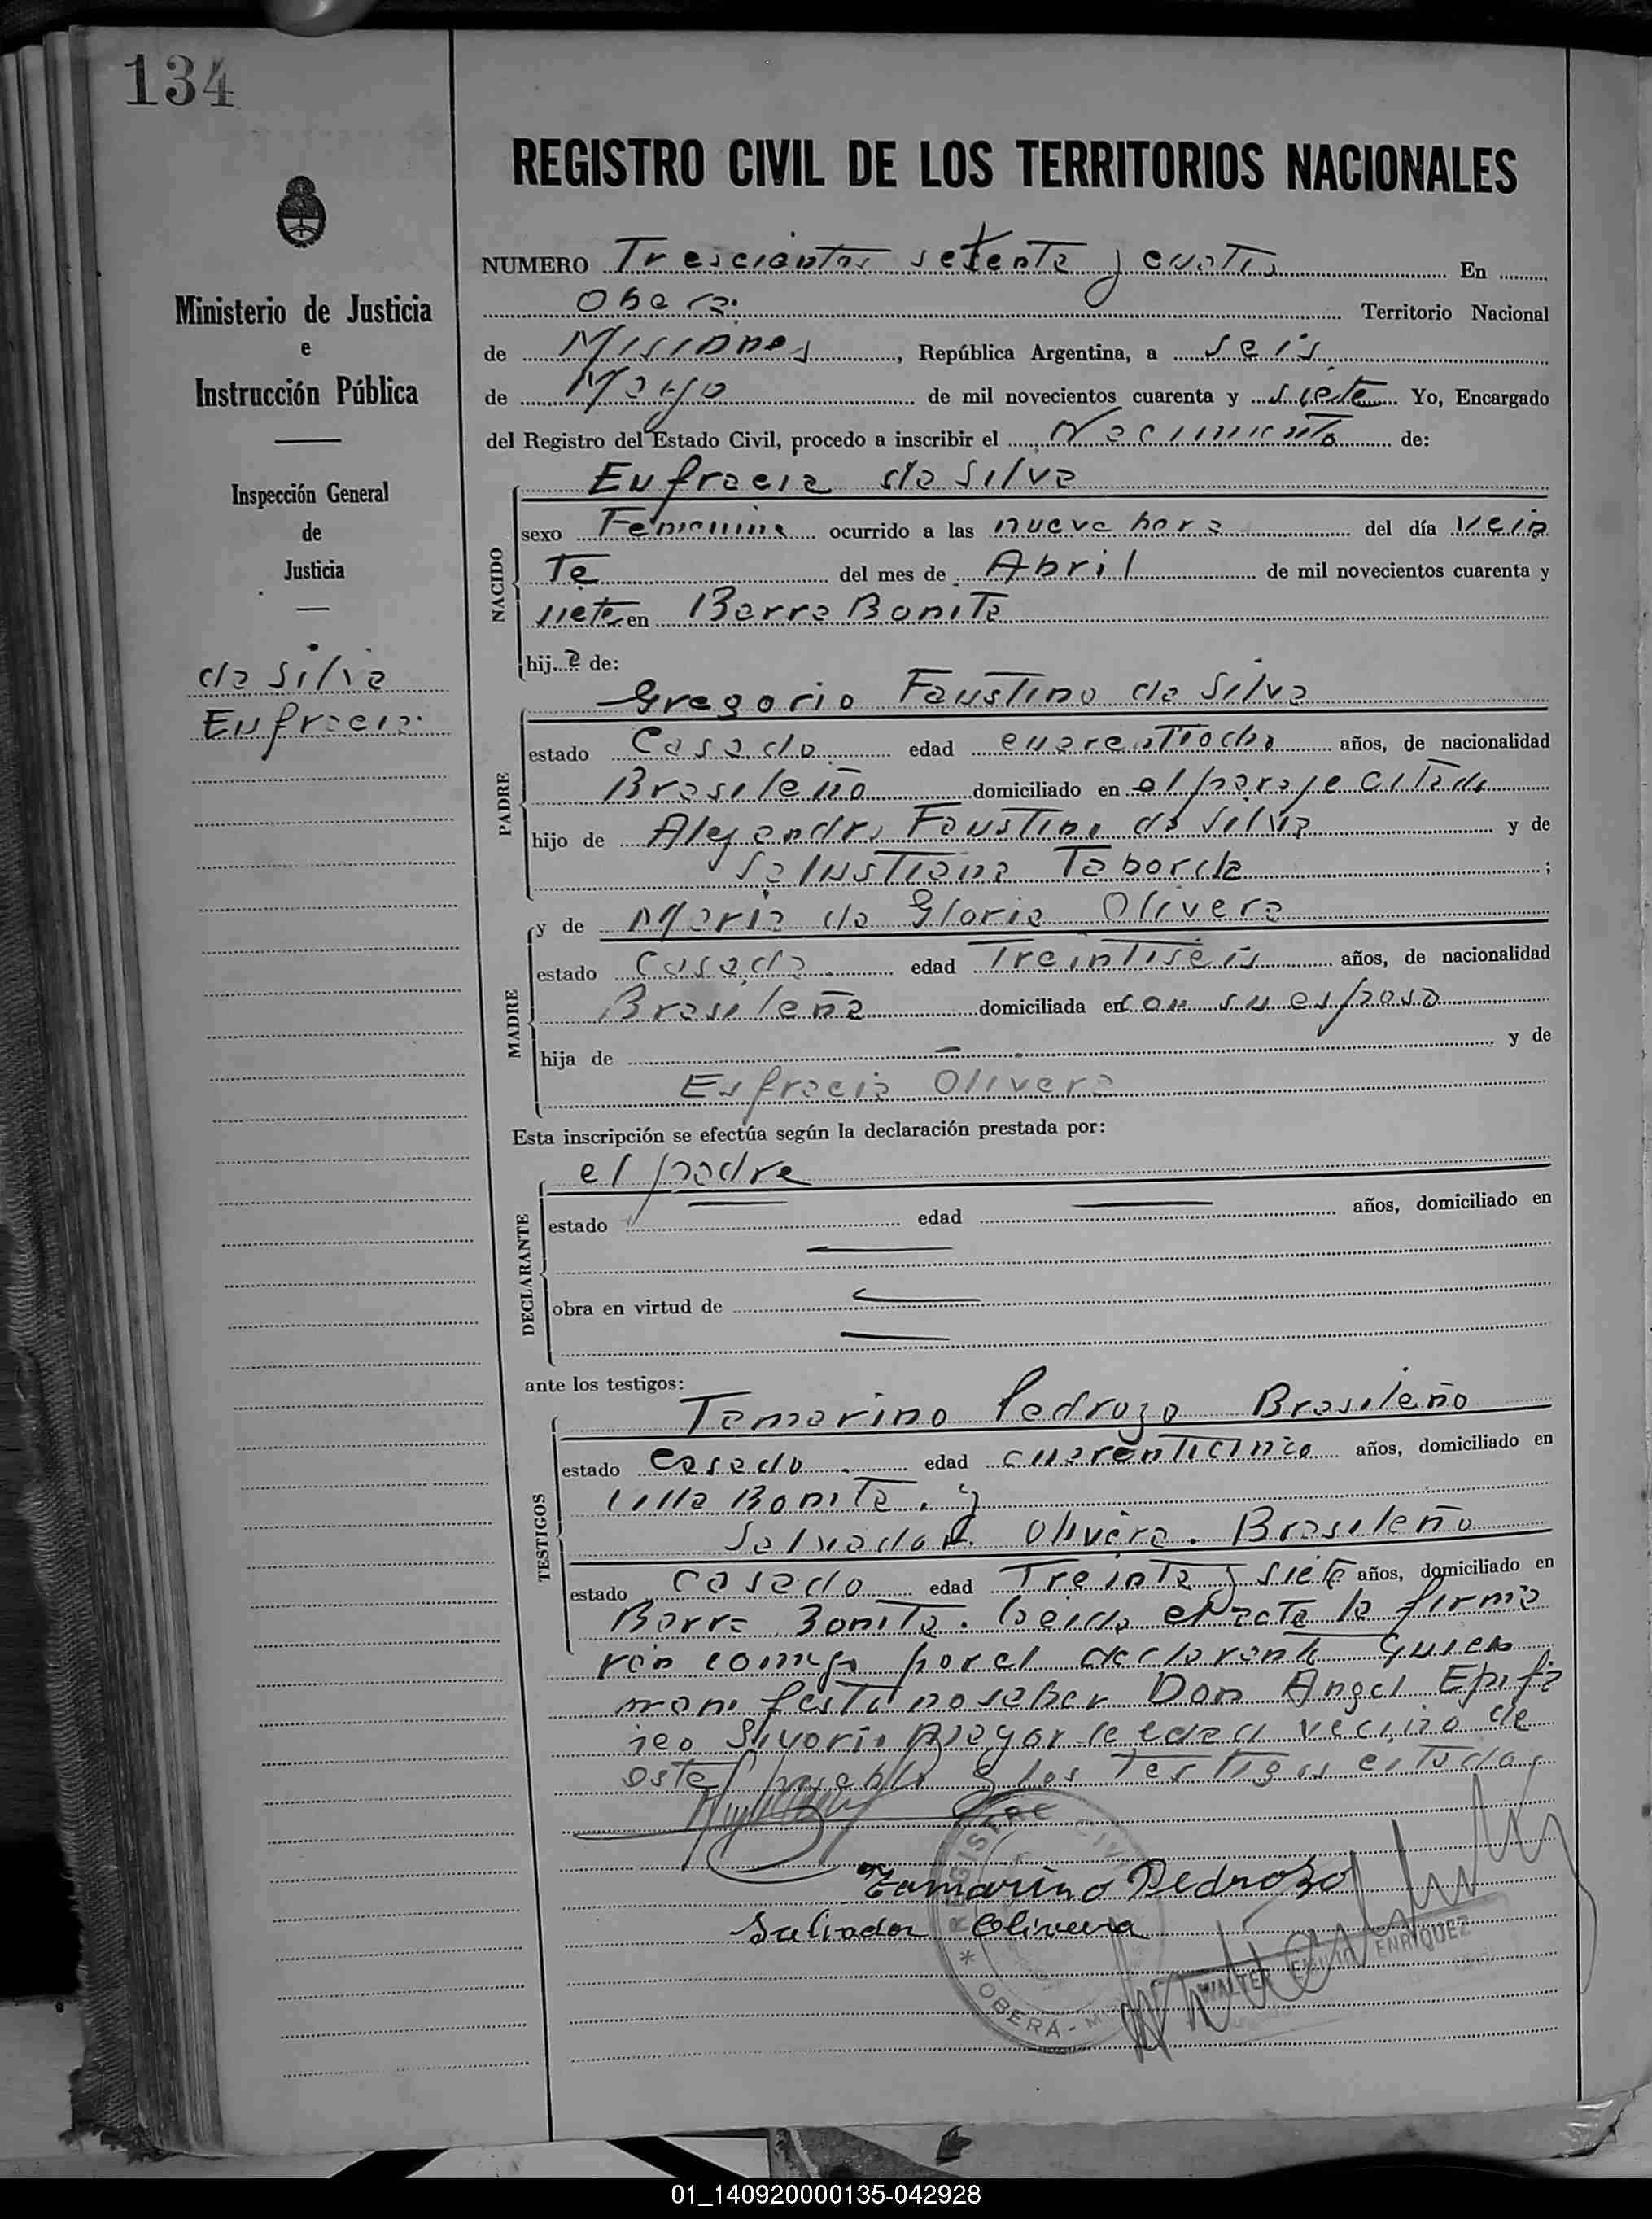 134
REGISTRO CIVIL DE LOS TERRITORIOS NACIONALES
NUMERO Tresciantos setenta y cuatro En
Obera. Territorio Nacional
de Misiones, República Argentina, a seis
de Mayo de mil novecientos cuarenta y siete Yo, Encargado
del Registro del Estado Civil, procedo a inscribir el Nacimiento de:
Ministerio de Justicia
e
Instrucción Pública
Inspección General
de
Justicia
da Silva
Eufracia
NACIDO
Eufracia da Silva
sexo Femenina ocurrido a las nueve hora del día vein
te del mes de Abril de mil novecientos cuarenta y
siete en Barra Bonita
hija de:
PADRE
Gregorio Faustino da Silva
estado Casado edad cuarentiocho años, de nacionalidad
Brasileño domiciliado en el paraje citado
hijo de Alejandro Faustino da Silva y de
Salustiana Taborda ;
MADRE
y de Maria da Gloria Olivera
estado Casada. edad Treintiseis años, de nacionalidad
Brasileña domiciliada en con su esposo
hija de — y de
Eufracia Olivera
Esta inscripción se efectúa según la declaración prestada por:
DECLARANTE
el padre
estado — edad — años, domiciliado en
—
obra en virtud de —
—
ante los testigos:
TESTIGOS
Tamarino Pedrozo Brasileño
estado Casado. edad cuarenticinco años, domiciliado en
Villa Bonita. y
Salvador Olivera. Brasileño
estado Casado edad Treinta y siete años, domiciliado en
Barra Bonita. Leida el acta la firma
ron comigo por el declarante quien
manifestó no saber Don Angel Epifa
neo mayor de edad vecino de
este pueblo y los testigos citados
Tamarino Pedrozo
Salvador Olivera
REGISTRO CIVIL
* OBERÁ - M
WALTER EMILIO ENRIQUEZ
01_140920000135-042928